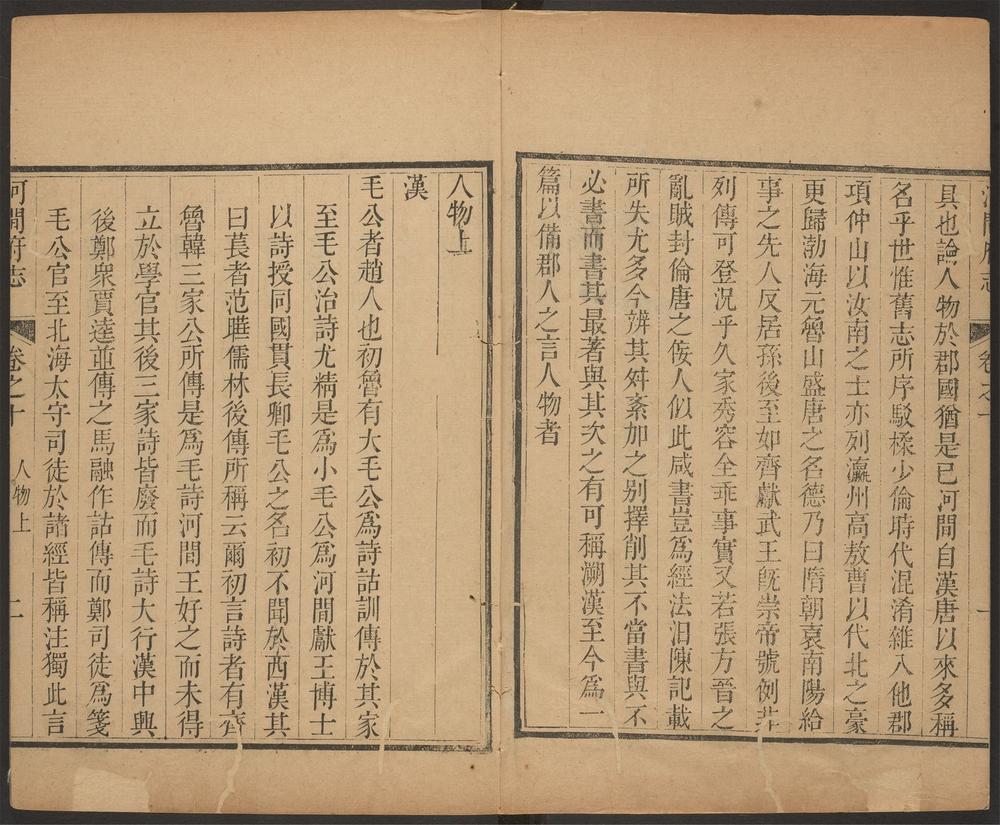 河間府志 卷之十 一
具也論人物於郡國猶是已河間自漢唐以來多稱
名乎世惟舊志所序駁樣少倫時代混淆雜入他郡
項仲山以汝南之士亦列瀛州高敖曹以代北之豪
更歸渤海元魯山盛唐之名德乃曰隋朝袁南陽給
事之先人反居孫後至如齊獻武王旣崇帝號例非
列傳可登況乎久家秀容全乖事實又若張方晉之
亂賊封倫唐之佞人似此咸書豈爲經法汨陳記載
所失尤多今辨其舛紊加之别擇削其不當書與不
必書而書其最著與其次之有可稱溯漢至今爲一
篇以備郡人之言人物者
人物上
漢
毛公者趙人也初魯有大毛公爲詩詁訓傳於其家
至毛公治詩尤精是爲小毛公爲河間獻王博士
以詩授同國貫長卿毛公之名初不聞於西漢其
曰萇者范曄儒林後傳所稱云爾初言詩者有齊
魯韓三家公所傳是爲毛詩河間王好之而未得
立於學官其後三家詩皆廢而毛詩大行漢中興
後鄭衆賈逵並傳之馬融作詁傳而鄭司徒爲箋
毛公官至北海太守司徒於諸經皆稱注獨此言
河間府志 卷之十 人物上 二